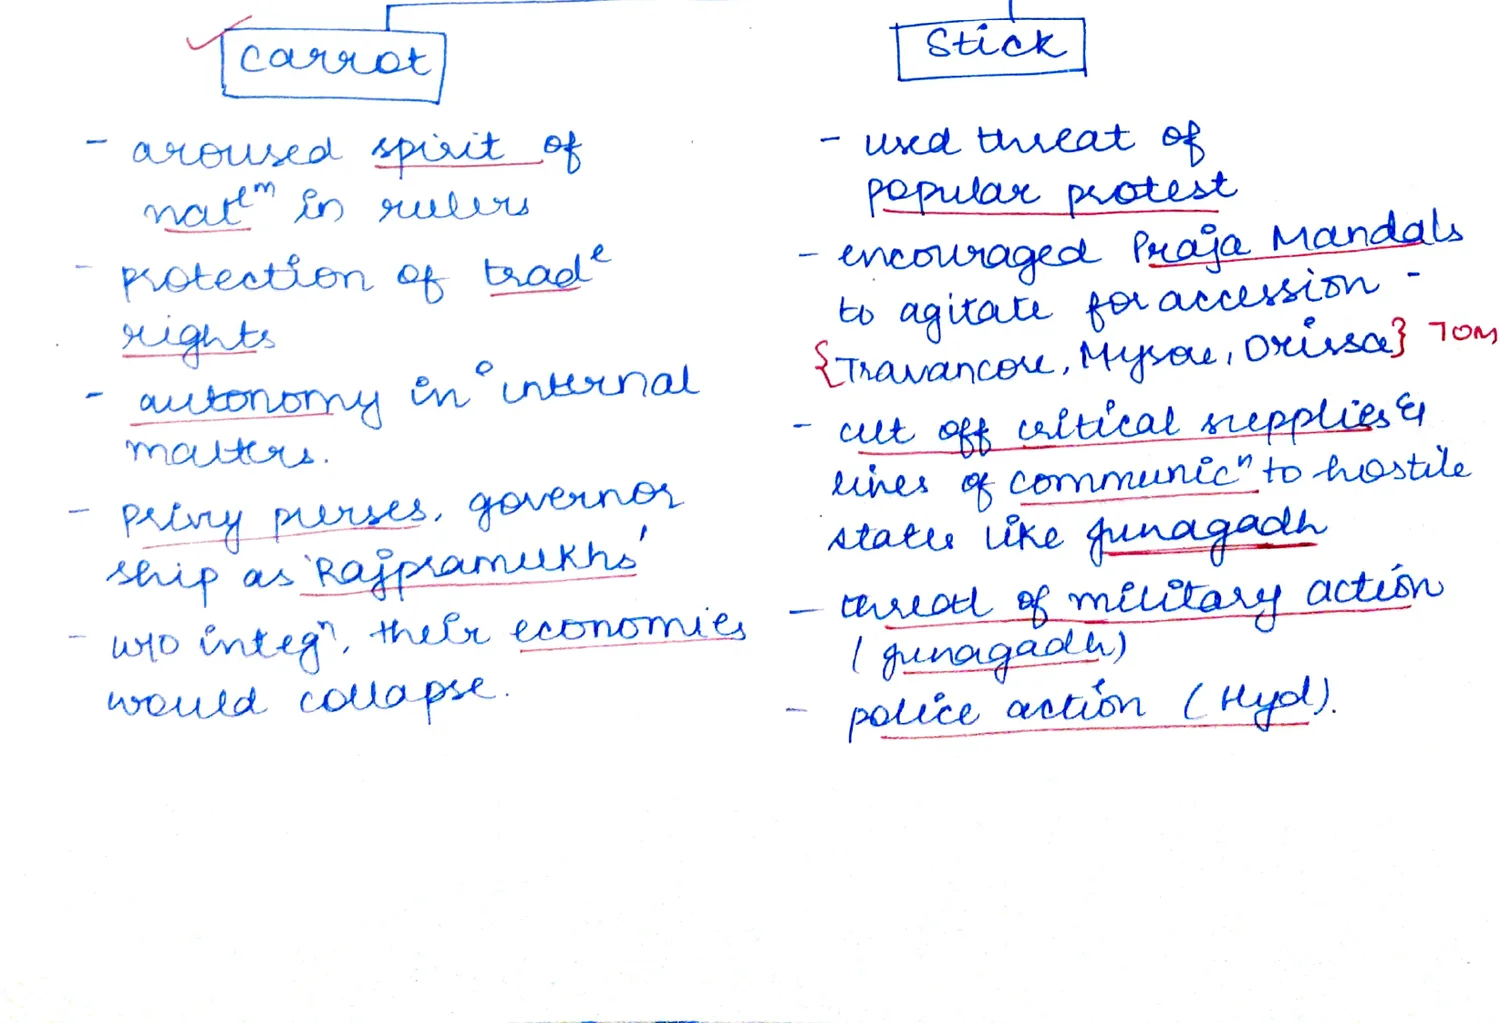 Carrot
- aroused spirit of
natlm in rulers
- protection of trade
rights
- autonomy in internal
matters.
- privy purses, governor
ship as 'Rajpramukhs'
- w/o integn, their economies
would collapse.
Stick
- used threat of
popular protest
- encouraged Praja Mandals
to agitate for accession -
{Travancore, Mysore, Orissa} TOM
- cut off critical supplies &
lines of communicn to hostile
states like Junagadh
- threat of military action
(Junagadh)
- police action (Hyd).